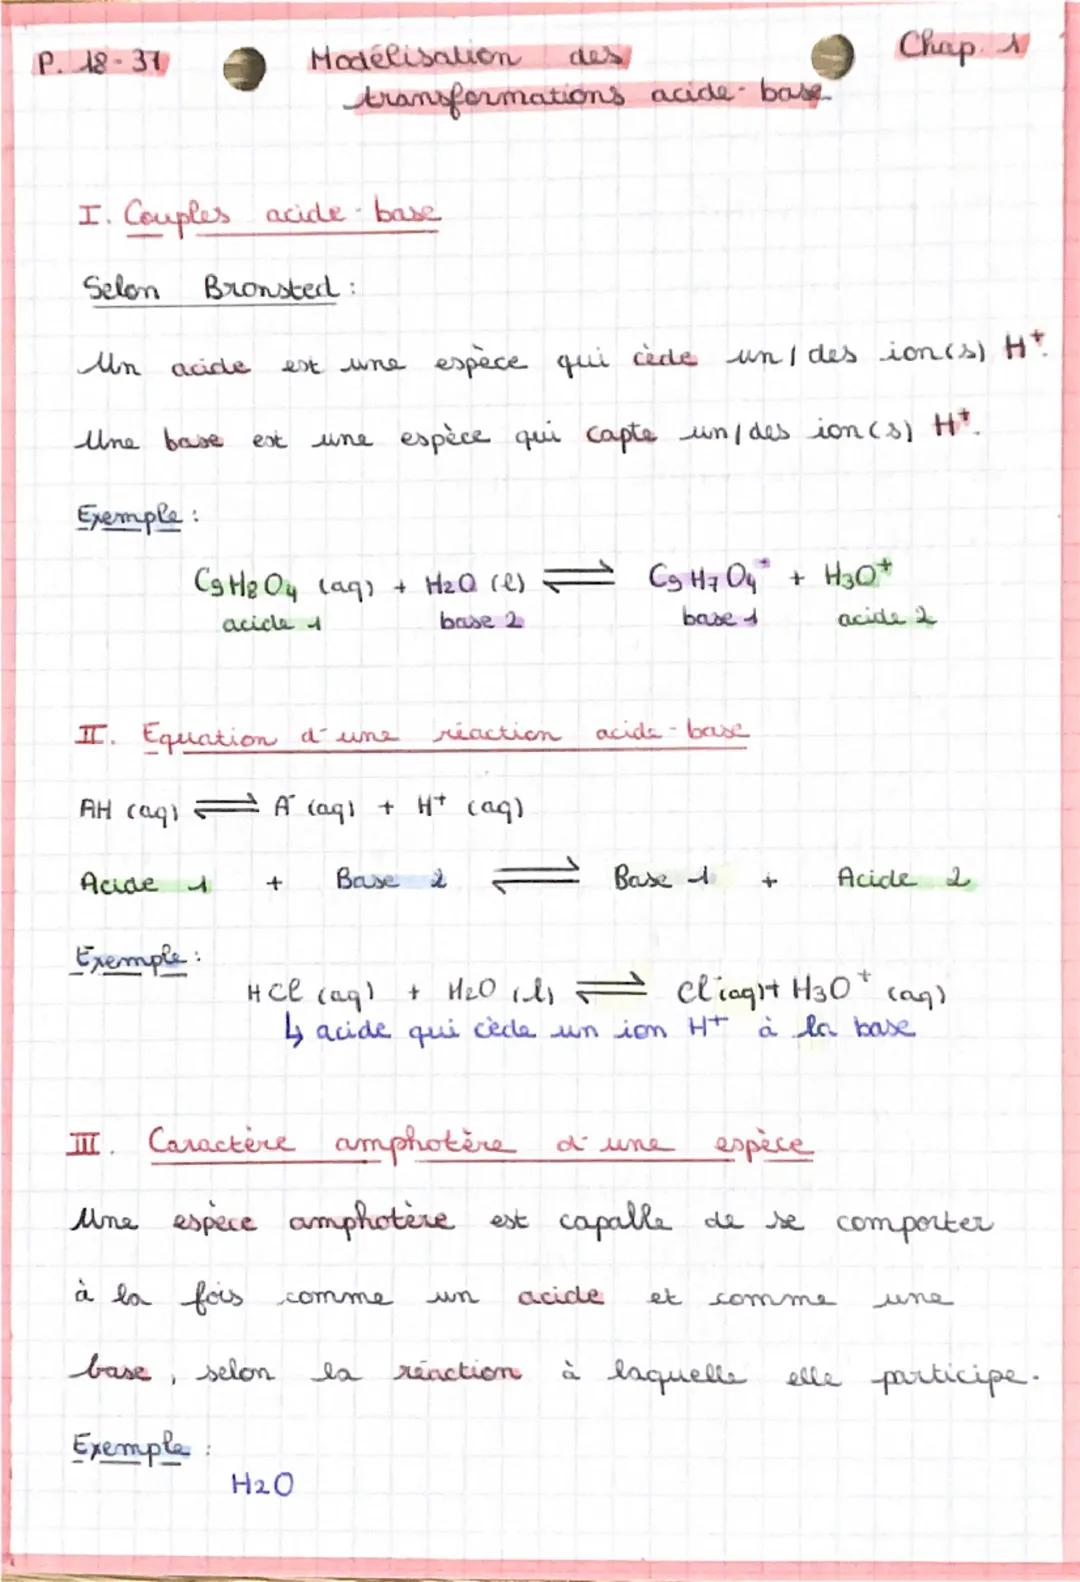 P. 18-37 Modélisation des Chap. 1
transformations acide-base
I. Couples acide-base
Selon Bronsted :
Un acide est une espèce qui cède un/des ion(s) H⁺.
Une base est une espèce qui capte un/des ion(s) H⁺.
Exemple :
C9H8O4 (aq) + H2O (l) ⇌ C9H7O4⁻ + H3O⁺
acide 1 base 2 base 1 acide 2
II. Equation d'une réaction acide-base
AH (aq) ⇌ A⁻ (aq) + H⁺ (aq)
Acide 1 + Base 2 ⇌ Base 1 + Acide 2
Exemple :
HCl (aq) + H2O (l) ⇌ Cl⁻(aq) + H3O⁺ (aq)
↳ acide qui cède un ion H⁺ à la base
III. Caractère amphotère d'une espèce
Une espèce amphotère est capable de se comporter
à la fois comme un acide et comme une
base, selon la réaction à laquelle elle participe.
Exemple :
H2O